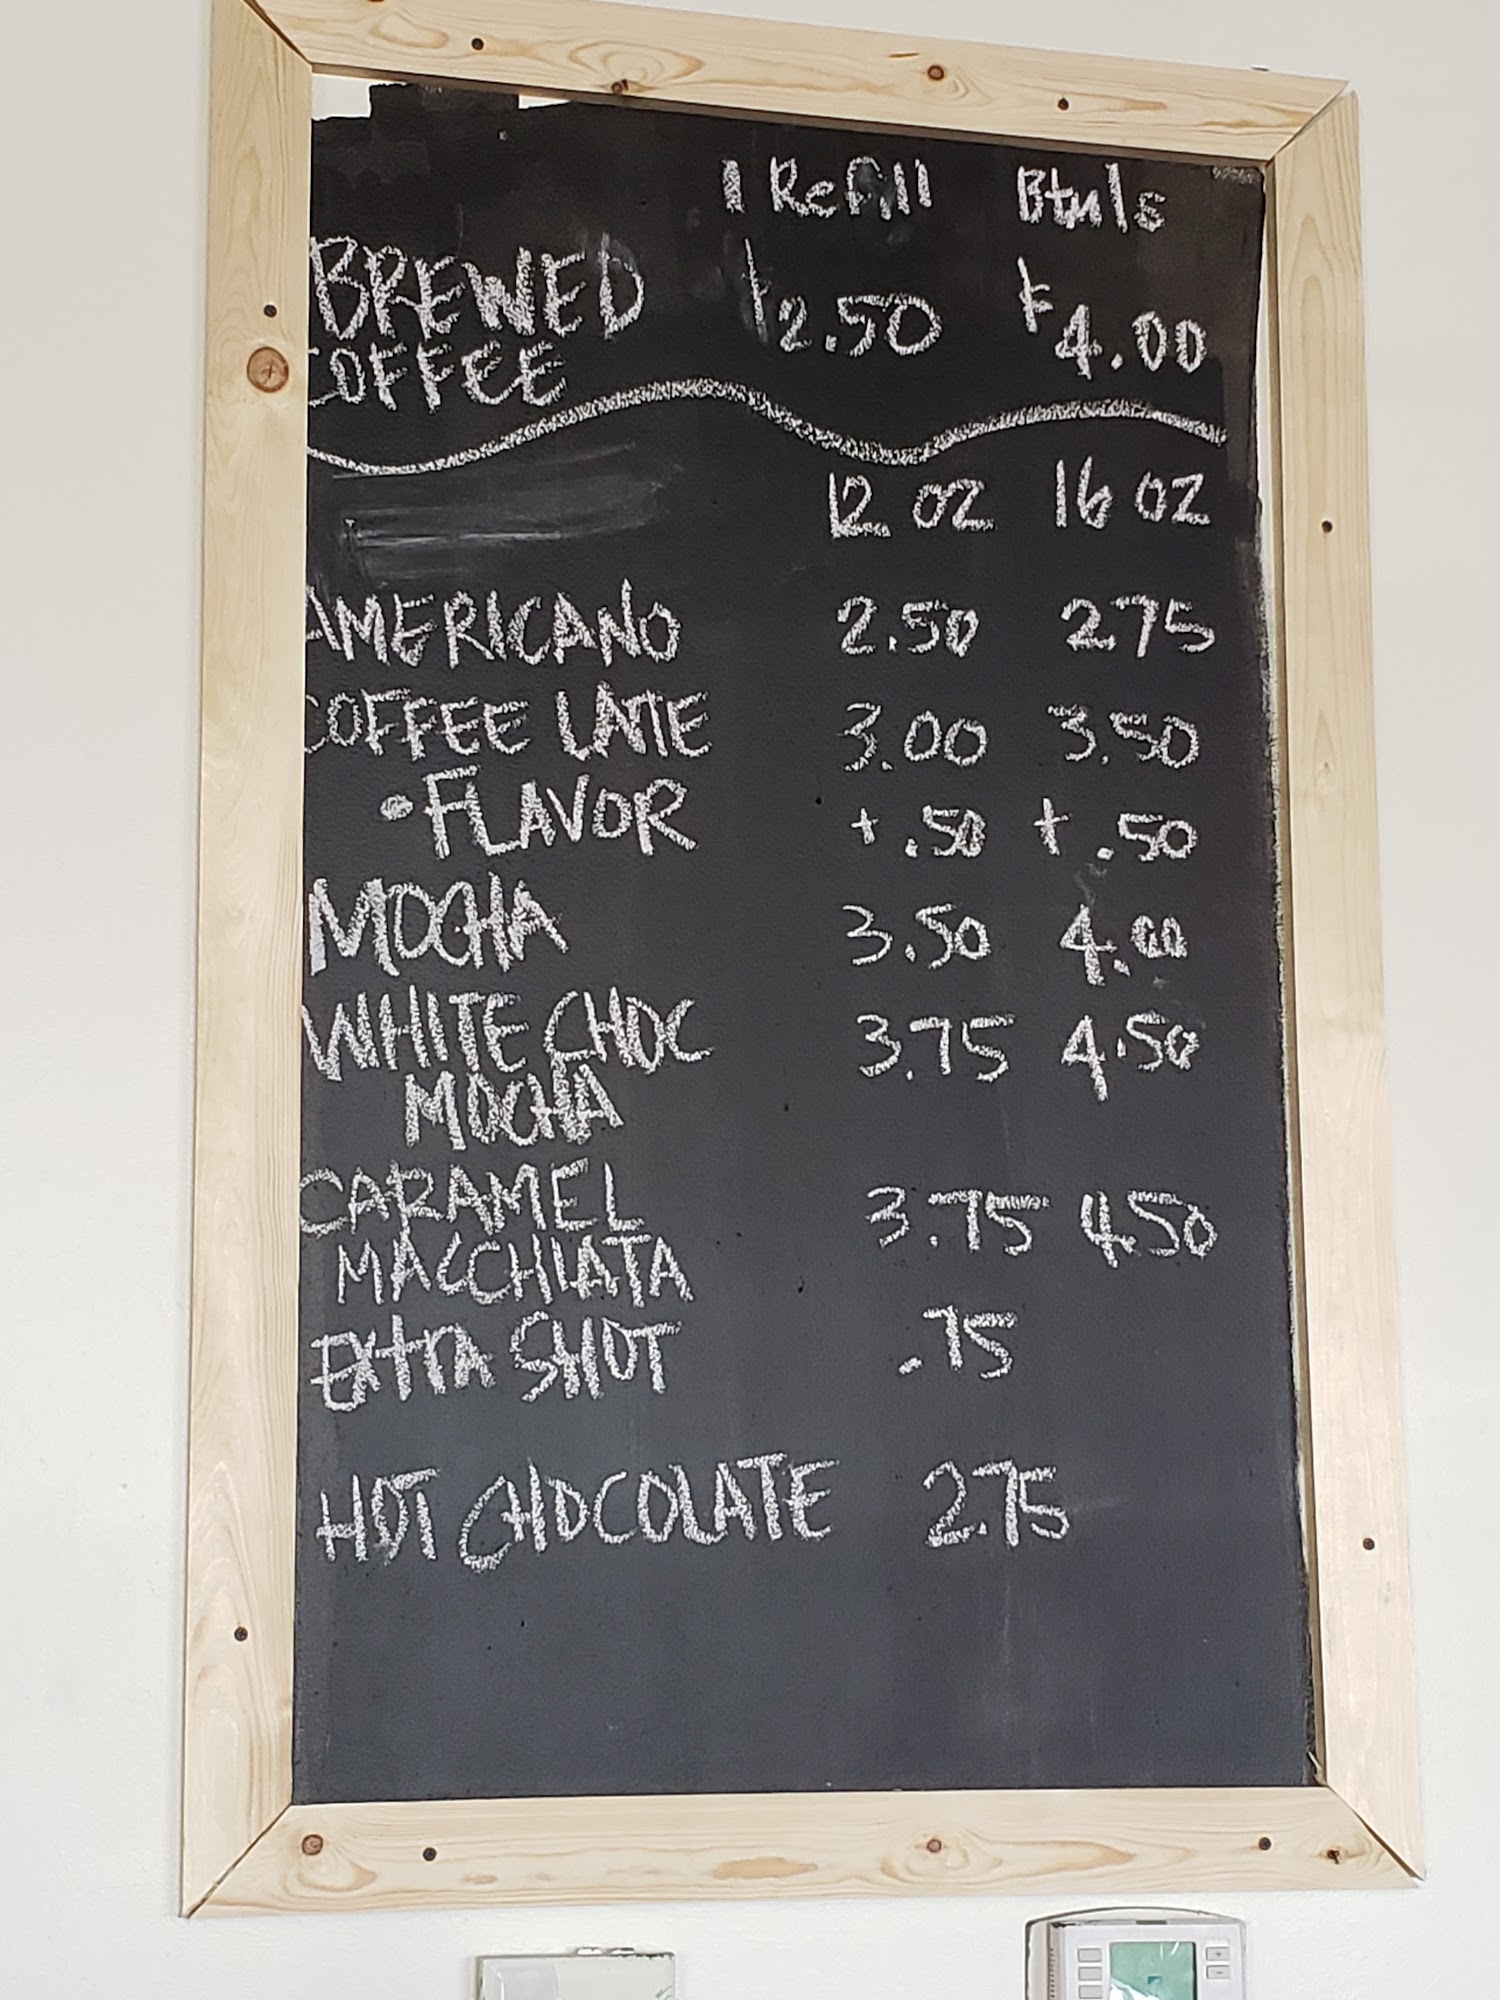 1 Refill Btmls
BREWED 2.50 4.00
COFFEE
12 OZ 16 OZ
AMERICANO 2.50 2.75
COFFEE LATTE 3.00 3.50
• FLAVOR + .50 + .50
MOCHA 3.50 4.00
WHITE CHOC 3.75 4.50
MOCHA
CARAMEL 3.75 4.50
MACCHIATA
EXTRA SHOT .75
HOT CHOCOLATE 2.75